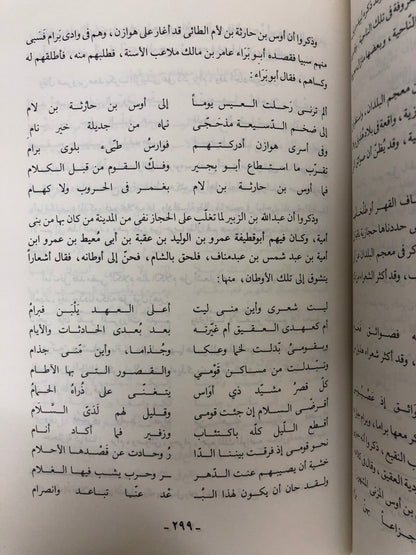 وذكروا أن أوس بن حارثة بن لأم الطائى قد أغار على هوازن، وهم فى وادى بَرام فَسَبى
منهم سبيا فقصده أبو براء عامر بن مالك ملاعب الأسنة، فطلبهم منه، فأطلقهم له
وكساهم، فقال أبو بَرَاء:
ألم ترنى رَحلت العيس يوماً إلى أوس بن حارثة بن لأم
إلى ضخم الدَّسيعة مذحجىّ نماه من جديلة خير نام
وفى أسرى هوازن أدركتهم فوارسُ طىّء بلوى برام
تقرّب ما استطاع أبو بجير وفكَّ القوم من قبل الكلام
فما أوس بن حارثة بن لأم بغمر فى الحروب ولا كهام
وذكروا أن عبدالله بن الزبير لما تغلّب على الحجاز نفى من المدينة من كان بها من بنى
أمية، وكان فيهم أبوقطيفة عمرو بن الوليد بن عقبة بن أبى مُعيط بن عمرو ابن
أمية بن عبد شمس بن عبدمناف، فلحق بالشام، فحنَّ إلى أوطانه، فقال أشعاراً
يتشوق إلى تلك الأوطان، منها:
ليت شعرى وأين منى ليت أعلى العهد يَلْبَن فبرامُ
أم كعهدى العقيق أم غيّرته بعد بُعدى الحادثات والأيام
وبقومى بُدلت لخما وعكا وجذاما، وأين منى جذام
وتبدلت من مساكن قومى والقصور التى بها الآطام
كلّ قصر مشيّد ذى أواس يتغنّى على ذُراهُ الحمامُ
أقرضى السلام إن جئت قومى وقليل لهم لدَىّ السَّلام
أقطع الليل كلّه باكتئاب وزفير فما أكاد أنام
نحو قومى إذ فرقت بيننا الدا ر وحادت عن قصدها الأحلام
خشية أن يصيبهم عنت الدهر وحرب يشب فيها الغلام
ولقد حان أن يكون لهذا البُـ عد عنّا تباعد وانصرام
- ٢٩٩ -
معجم البلدان